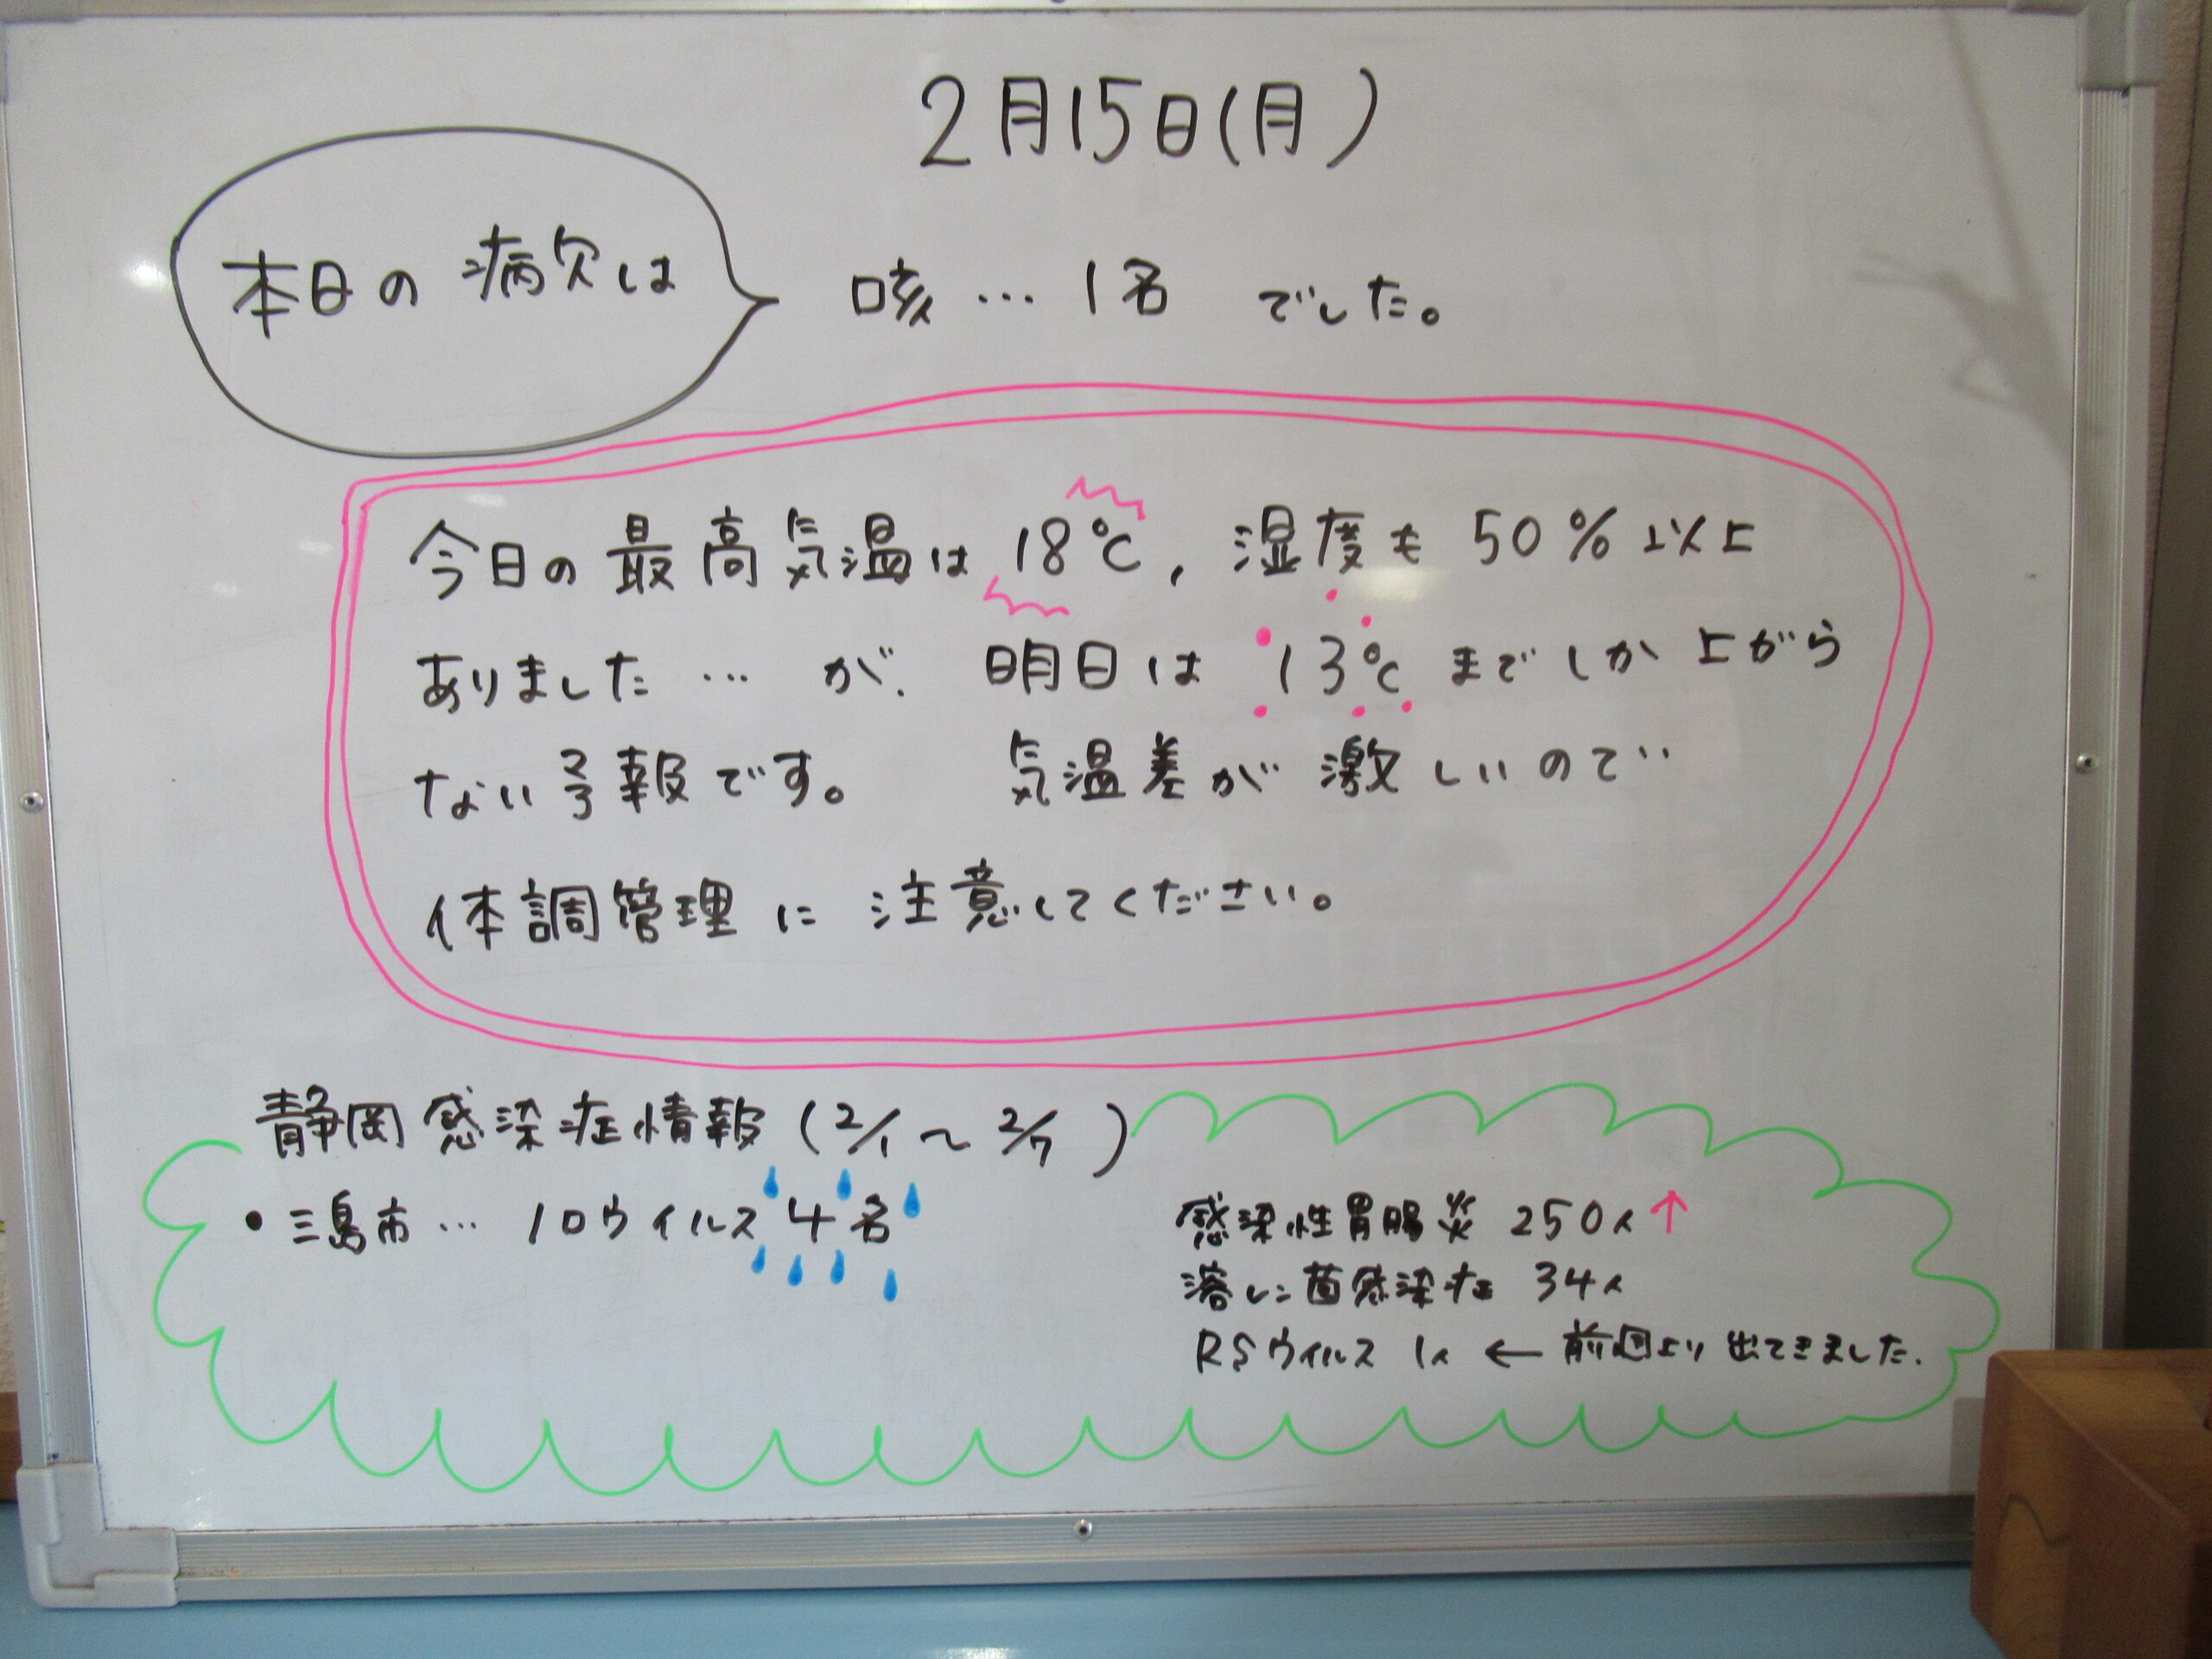 2月15日(月)
本日の病欠は
咳…1名 でした。
今日の最高気温は 18℃, 湿度も 50%以上
ありました… が、明日は 13℃ までしか上がら
ない予報です。 気温差が激しいので
体調管理に注意してください。
静岡感染症情報 (2/1〜2/7)
・三島市… ノロウイルス 4名
感染性胃腸炎 250人↑
溶レン菌感染症 34人
RSウイルス 1人 ← 前回より出てきました.